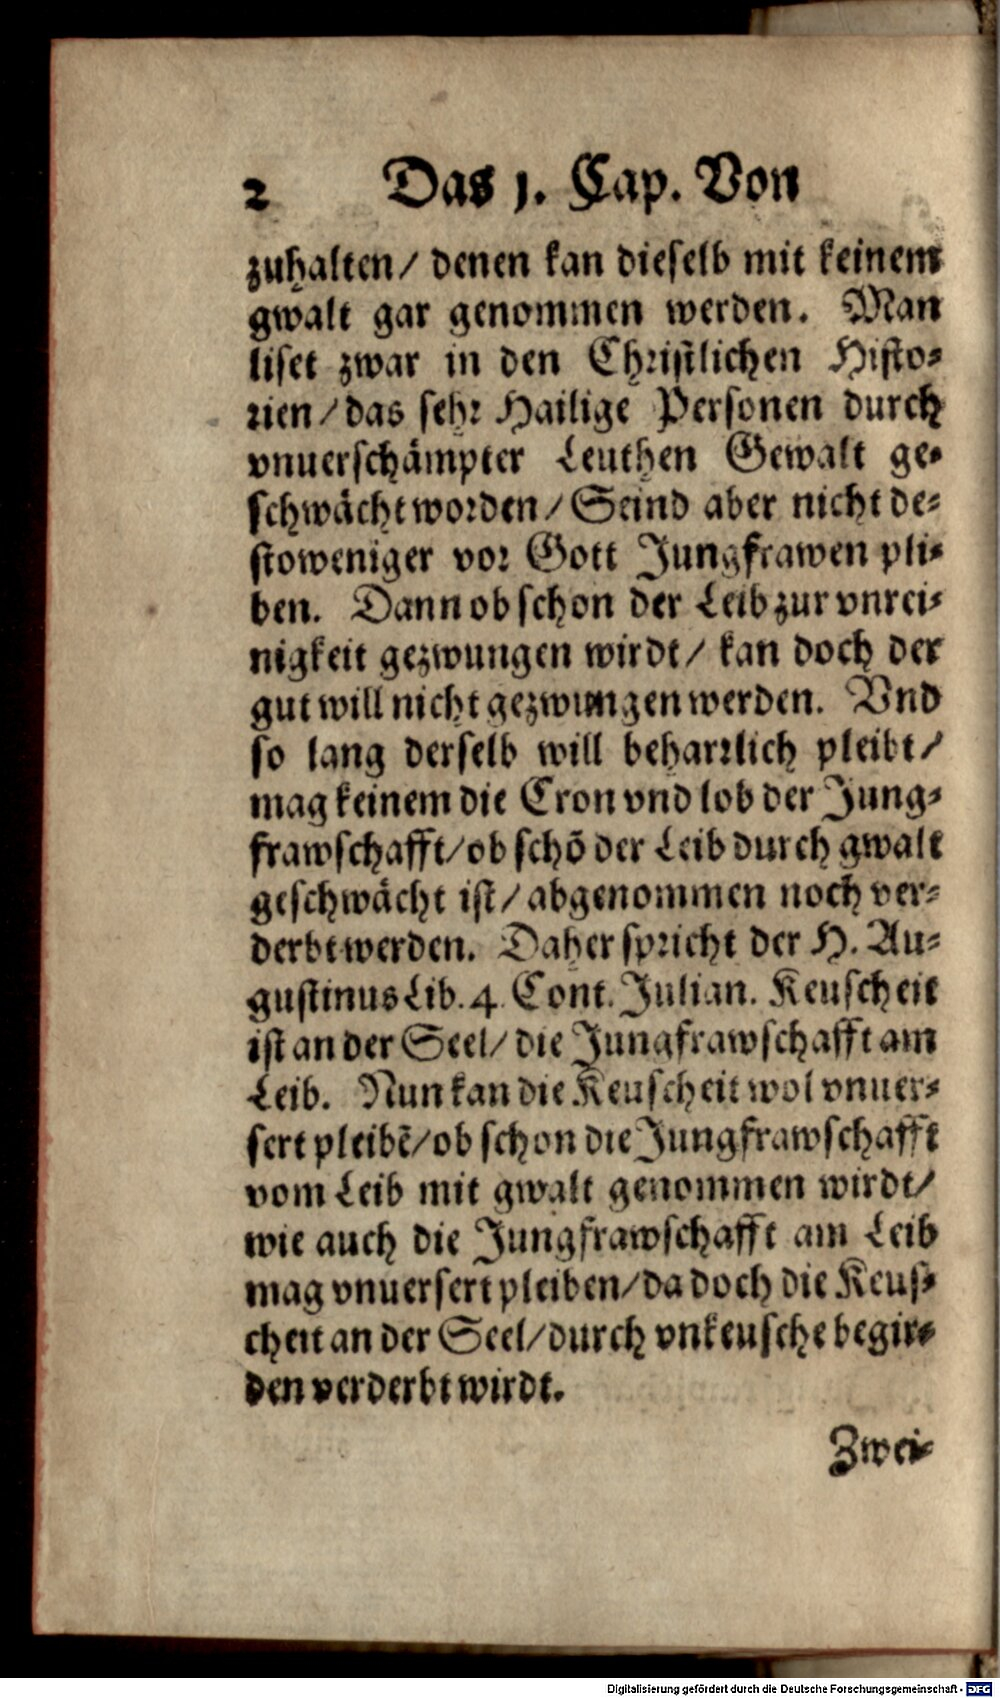 2 Das 1. Cap. Von
zuhalten/ denen kan dieselb mit keinem
gwalt gar genommen werden. Man
liset zwar in den Christlichen Histo-
rien/ das sehr Hailige Personen durch
vnuerschämpter Leuthen Gewalt ge-
schwächt worden/ Seind aber nicht de-
stoweniger vor Gott Jungfrawen pli-
ben. Dann ob schon der Leib zur vnrei-
nigkeit gezwungen wirdt/ kan doch der
gut will nicht gezwungen werden. Vnd
so lang derselb will beharrlich pleibt/
mag keinem die Cron vnd lob der Jung-
frawschafft/ ob schõ der Leib durch gwalt
geschwächt ist/ abgenommen noch ver-
derbt werden. Daher spricht der H. Au-
gustinus Lib. 4. Cont. Julian. Keuscheit
ist an der Seel/ die Jungfrawschafft am
Leib. Nun kan die Keuscheit wol vnuer-
sert pleibẽ/ ob schon die Jungfrawschafft
vom Leib mit gwalt genommen wirdt/
wie auch die Jungfrawschafft am Leib
mag vnuersert pleiben/ da doch die Keus-
cheit an der Seel/ durch vnkeusche begir-
den verderbt wirdt.
Zwei-
Digitalisierung gefördert durch die Deutsche Forschungsgemeinschaft - DFG